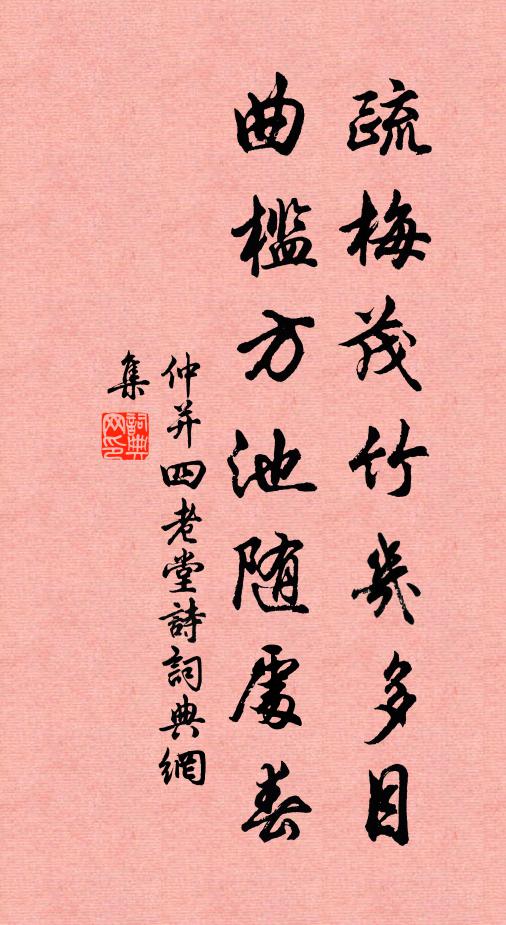 疏梅茂竹幾多目
曲檻方池随處春
仲并四老堂詩詞典網
集
詞典網印